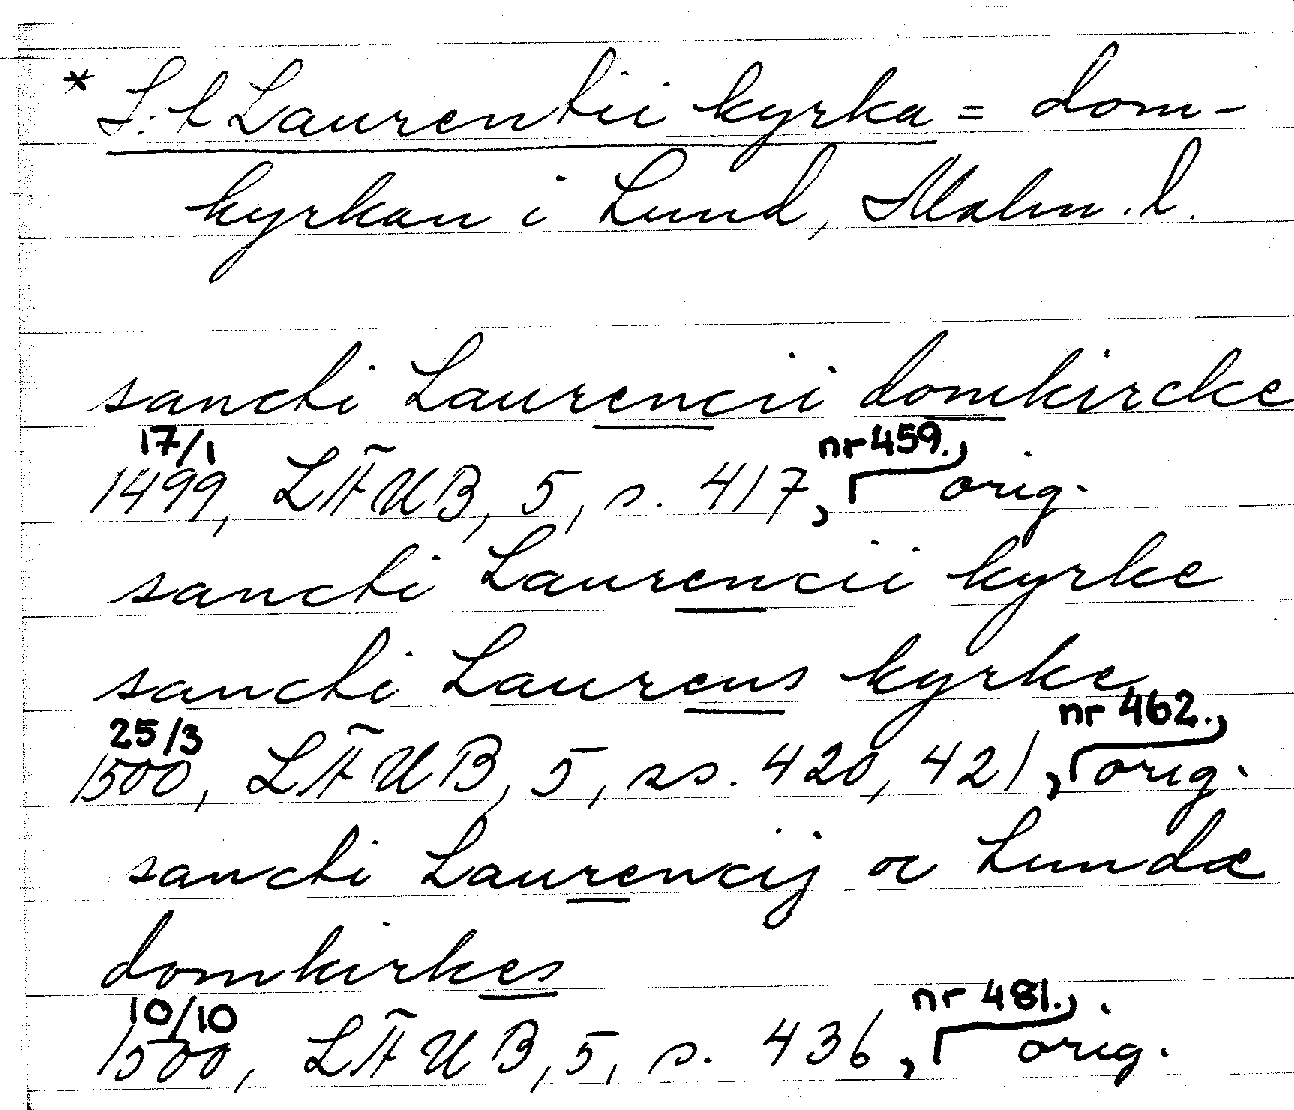 * S:t Laurentii kyrka = dom-
kyrkan i Lund, Malm. l.
sancti Laurencii domkircke
17/1 nr 459.,
1499, LÄUB, 5, s. 417, orig.
sancti Laurencii kyrke
sancti Laurens kyrke
25/3 nr 462.,
1500, LÄUB, 5, ss. 420, 421, orig.
sancti Laurencij oc Lundæ
domkirkes
10/10 nr 481.,
1500, LÄUB, 5, s. 436, orig.